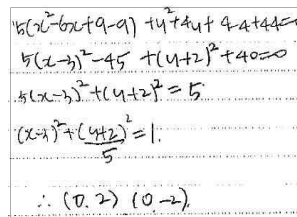 5(x²-6x+9-9) +y²+4y+4-4+44=0
5(x-3)²-45 +(y+2)²+40=0
5(x-3)²+(y+2)²=5
(x-3)²+(y+2)²/5=1.
∴ (0, 2) (0, -2).